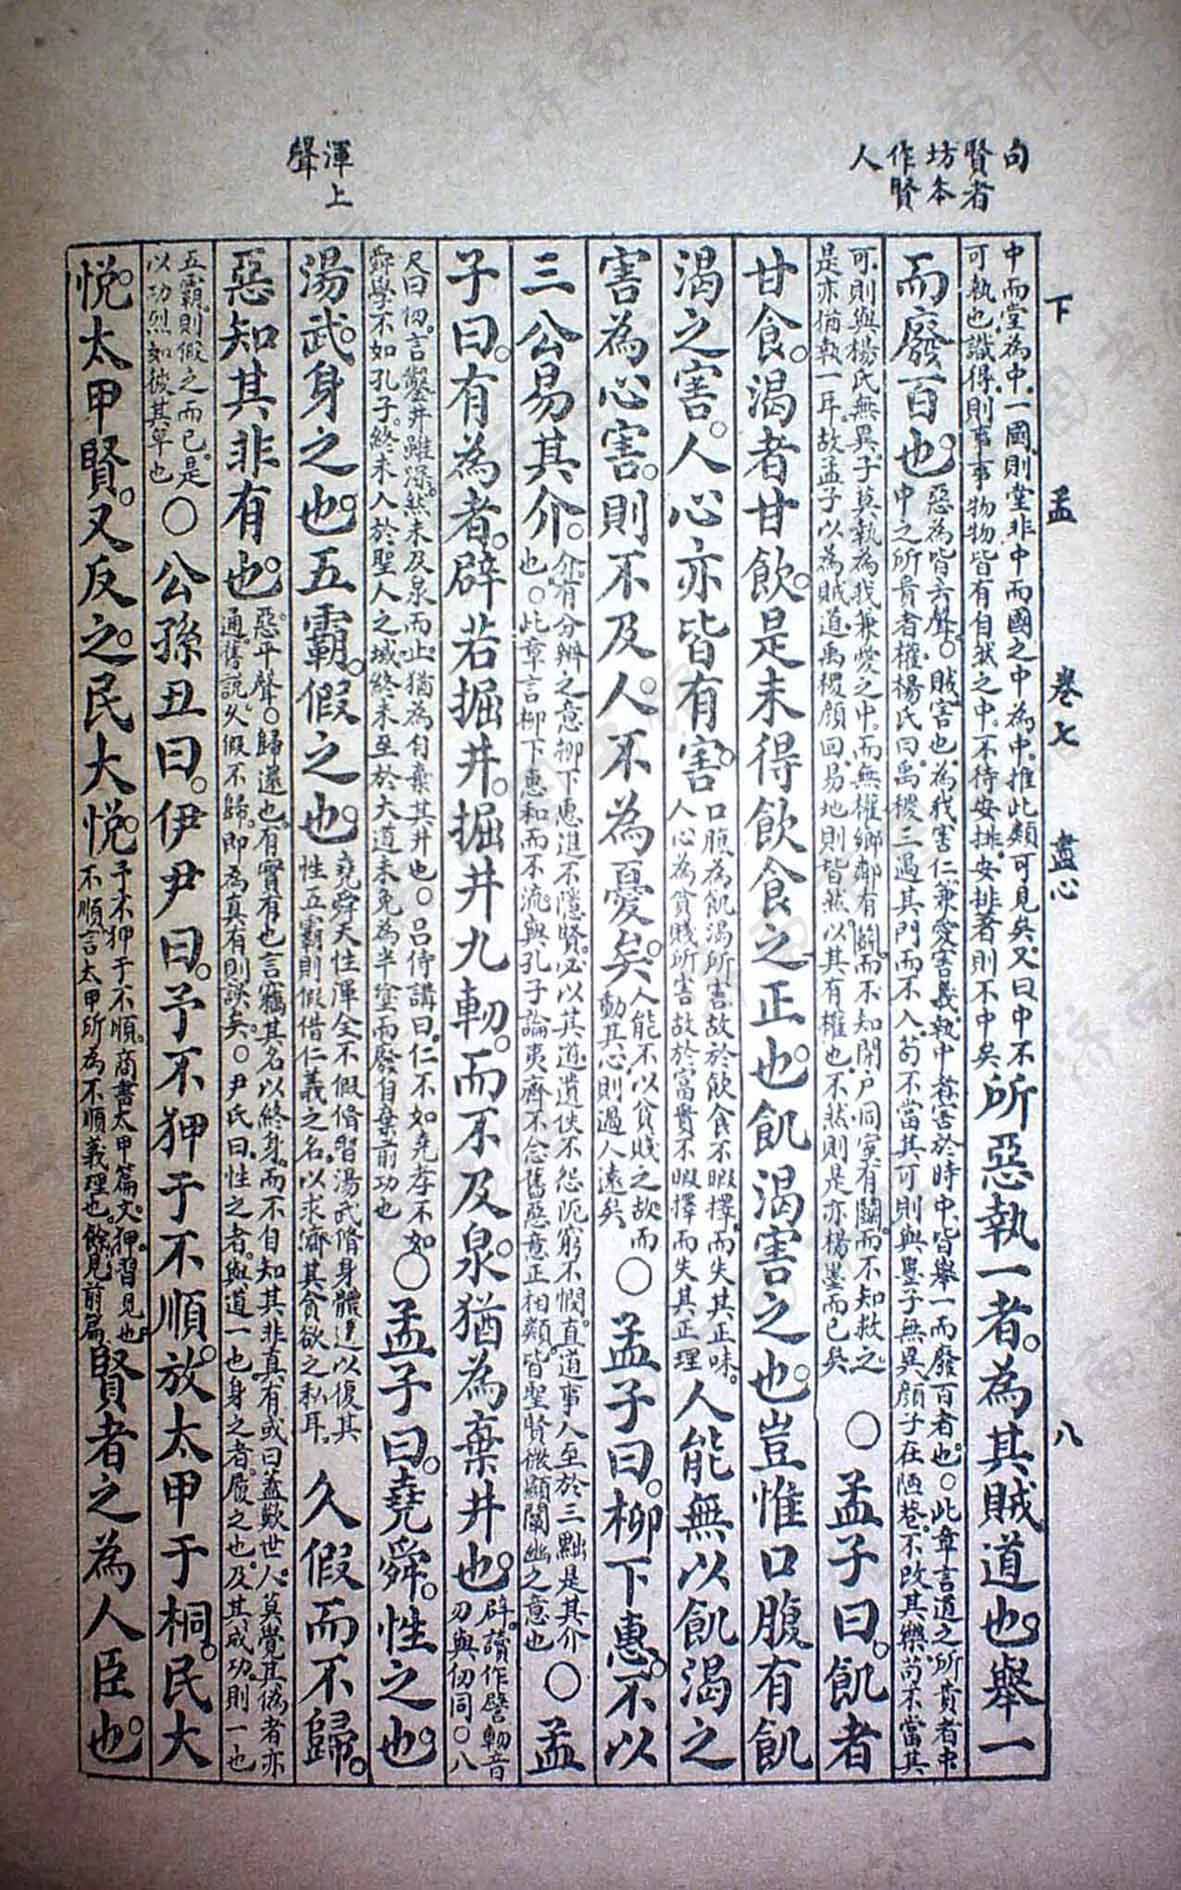 句
賢者
坊本
作賢
人
渾上
聲
下孟　卷七　盡心　八
中而堂為中一國則堂非中而國之中為中推此類可見矣又曰中不
可執也識得則事事物物皆有自然之中不待安排安排著則不中矣
所惡執一者。為其賊道也。舉一
而廢百也。
惡為皆去聲。○賊害也為我害仁兼愛害義執中者害於時中皆舉一而廢百者也。○此章言道之所貴者中
中之所貴者權楊氏曰禹稷三過其門而不入苟不當其可則與墨子無異顏子在陋巷不改其樂苟不當其
可則與楊氏無異子莫執為我兼愛之中而無權鄉鄰有鬬而不知閉戶同室有鬬而不知救之
是亦猶執一耳故孟子以為賊道禹稷顏回易地則皆然以其有權也不然則是亦楊墨而已矣
○孟子曰。飢者
甘食。渴者甘飲。是未得飲食之正也。飢渴害之也。豈惟口腹有飢
渴之害。人心亦皆有害。
口腹為飢渴所害故於飲食不暇擇而失其正味。
人心為貧賤所害故於富貴不暇擇而失其正理
人能無以飢渴之
害為心害。則不及人。不為憂矣。
人能不以貧賤之故而
動其心則過人遠矣
○孟子曰。柳下惠。不以
三公易其介。
介有分辨之意柳下惠進不隱賢必以其道遺佚不怨阨窮不憫直道事人至於三黜是其介
也。○此章言柳下惠和而不流與孔子論夷齊不念舊惡意正相類皆聖賢微顯闡幽之意也
○孟
子曰。有為者。辟若掘井。掘井九軔。而不及泉。猶為棄井也。
辟讀作譬軔音
刃與仞同。○八
尺曰仞。言鑿井雖深然未及泉而止猶為自棄其井也。○呂侍講曰仁不如堯孝不如
舜學不如孔子終未入於聖人之域終未至於大道未免為半塗而廢自棄前功也
○孟子曰。堯舜。性之也。
湯武。身之也。五霸。假之也。
堯舜天性渾全不假脩習湯武脩身體道以復其
性五霸則假借仁義之名以求濟其貪欲之私耳。
久假而不歸。
惡知其非有也。
惡平聲。○歸還也。有實有也言竊其名以終身而不自知其非真有或曰蓋歎世人莫覺其偽者亦
通舊說久假不歸即為真有則誤矣。○尹氏曰性之者與道一也身之者履之也及其成功則一也
五霸則假之而已是
以功烈如彼其卑也
○公孫丑曰。伊尹曰。予不狎于不順。放太甲于桐。民大
悅。太甲賢。又反之。民大悅。
予不狎于不順。商書太甲篇文。狎習見也。
不順言太甲所為不順義理也。餘見前篇
賢者之為人臣也。